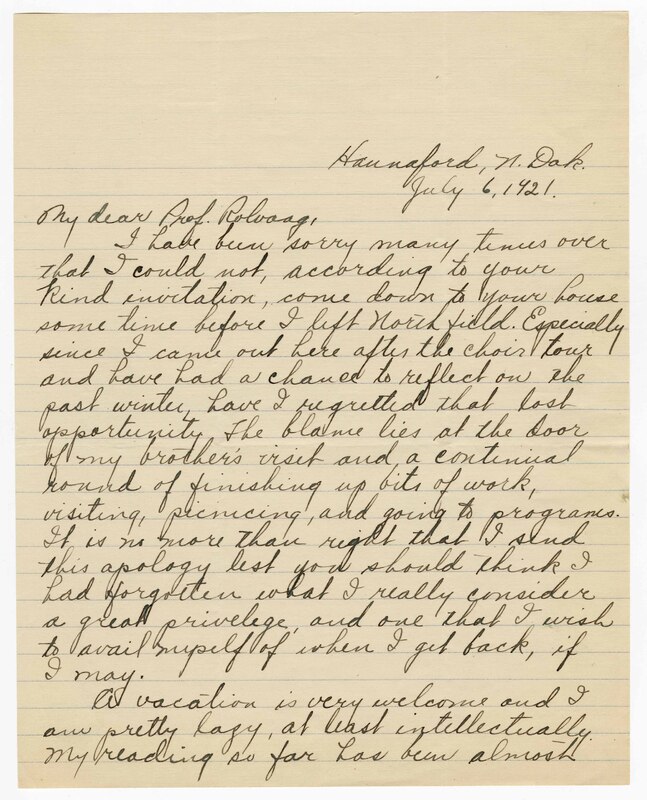 Hannaford, N. Dak.
July 6, 1921.
My dear Prof. Rolvaag,
I have been sorry many times over
that I could not, according to your
kind invitation, come down to your house
some time before I left Northfield. Especially
since I came out here after the choir tour
and have had a chance to reflect on the
past winter, have I regretted that lost
opportunity. The blame lies at the door
of my brother's visit and a continual
round of finishing up bits of work,
visiting, picnicing, and going to programs.
It is no more than right that I send
this apology lest you should think I
had forgotten what I really consider
a great privelege, and one that I wish
to avail myself of when I get back, if
I may.
A vacation is very welcome and I
am pretty lazy, at least intellectually.
My reading so far has been almost